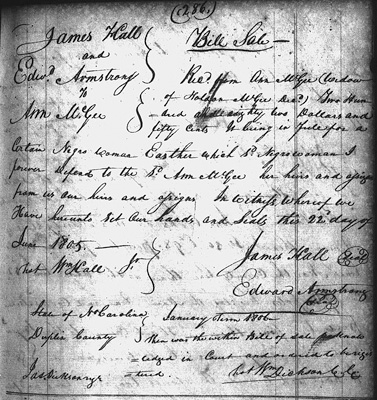 (286)
James Hall
and
Edwd Armstrong
To
Ann McGee
Bill Sale
Recd from Ann McGee (Widow
of Holden McGee Decd) Two Hun
=dred and eighty two Dollars and
fifty Cents it being in full for a
Certain Negro woman Easther which sd Negro woman I
forever defend to the sd Ann McGee her heirs and assigns
from us our heirs and assigns In Witness whereof we
Have hereunto Set our hands and Seals this 22d day of
June 1805
Test Wm Hall Jr
James Hall (Seal)
Edward Armstrong
(Seal)
State of No Carolina
Duplin County
January Term 1806
Then was the within Bill of sale
=ledged in Court and ordered to be regis
=tered.
Test Wm Dickson